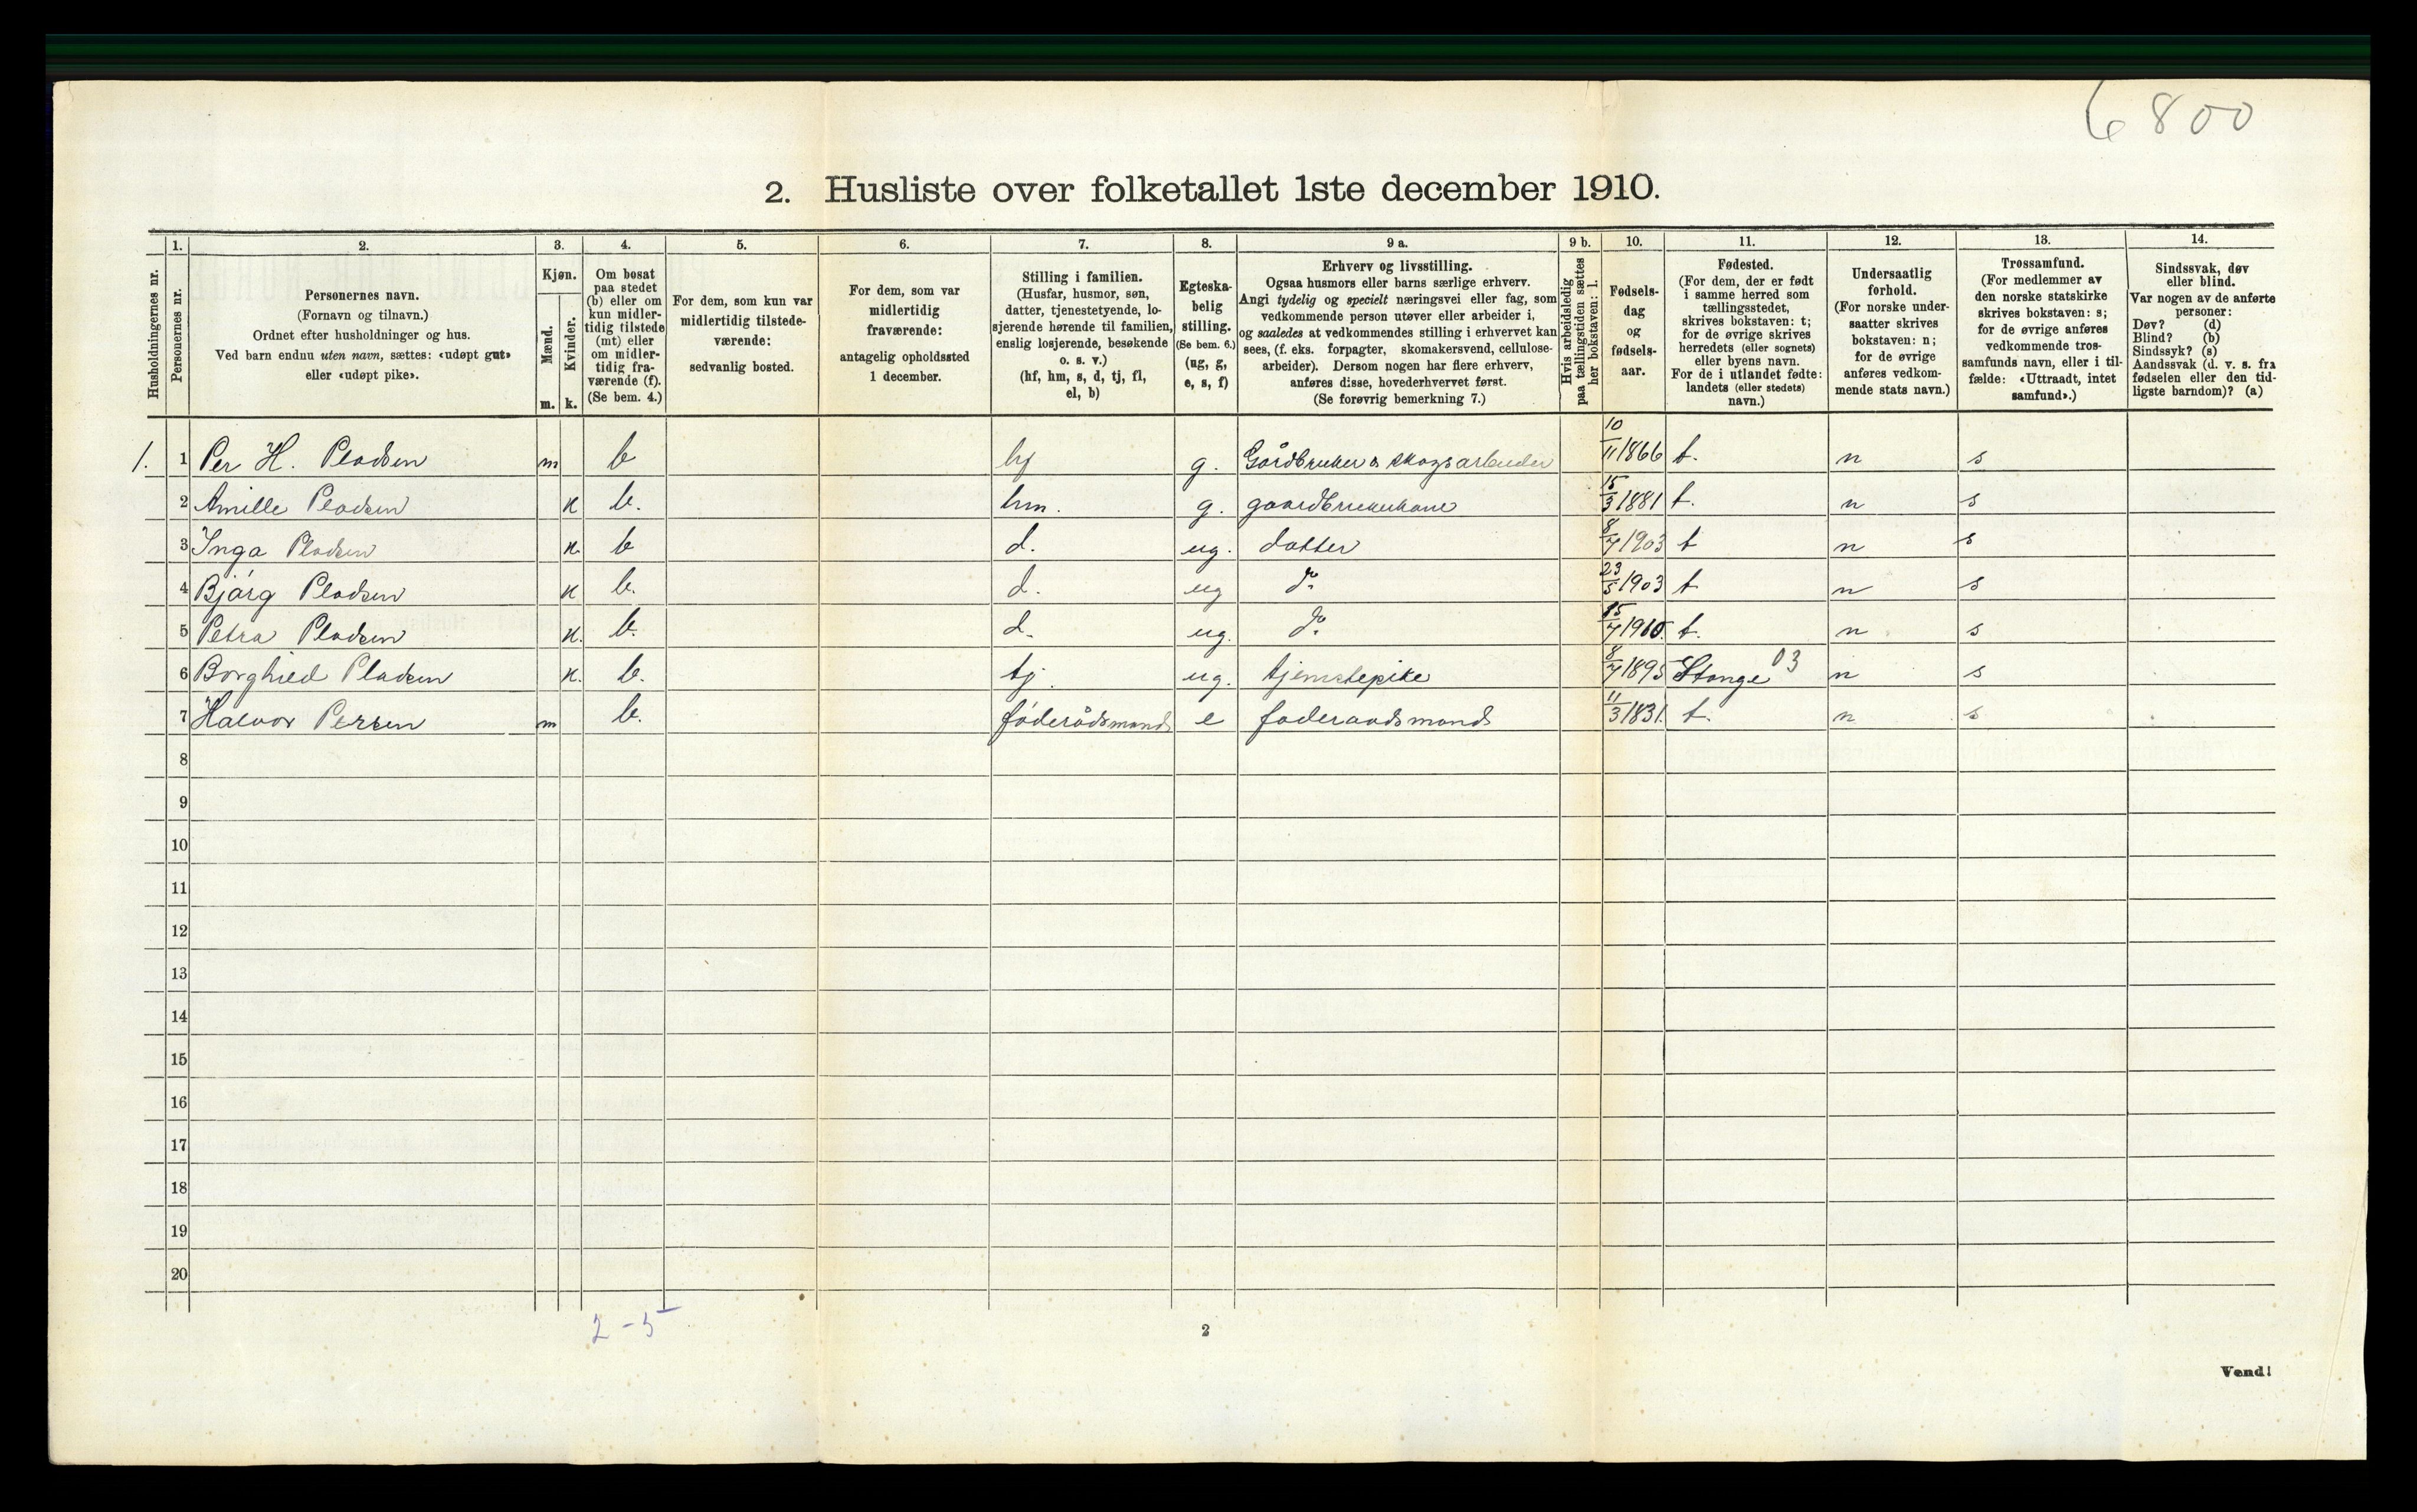 6800
2. Husliste over folketallet 1ste december 1910.
1. 2. 3. 4. 5. 6. 7. 8. 9 a. 9 b. 10. 11. 12. 13. 14.
Husholdningernes nr.
Personernes nr.
Personernes navn.
(Fornavn og tilnavn.)
Ordnet efter husholdninger og hus.
Ved barn endnu uten navn, sættes: «udøpt gut»
eller «udøpt pike».
Kjøn.
Mænd.
Kvinder.
m. k.
Om bosat
paa stedet
(b) eller om
kun midler-
tidig tilstede
(mt) eller
om midler-
tidig fra-
værende (f).
(Se bem. 4.)
For dem, som kun var
midlertidig tilstede-
værende:
sedvanlig bosted.
For dem, som var
midlertidig
fraværende:
antagelig opholdssted
1 december.
Stilling i familien.
(Husfar, husmor, søn,
datter, tjenestetyende, lo-
sjerende hørende til familien,
enslig losjerende, besøkende
o. s. v.)
(hf, hm, s, d, tj, fl,
el, b)
Egteska-
belig
stilling.
(Se bem. 6.)
(ug, g,
e, s, f)
Erhverv og livsstilling.
Ogsaa husmors eller barns særlige erhverv.
Angi tydelig og specielt næringsvei eller fag, som
vedkommende person utøver eller arbeider i,
og saaledes at vedkommendes stilling i erhvervet kan
sees, (f. eks. forpagter, skomakersvend, cellulose-
arbeider). Dersom nogen har flere erhverv,
anføres disse, hovederhvervet først.
(Se forøvrig bemerkning 7.)
Hvis arbeidsledig
paa tællingstiden sættes
her bokstaven: l.
Fødsels-
dag
og
fødsels-
aar.
Fødested.
(For dem, der er født
i samme herred som
tællingsstedet,
skrives bokstaven: t;
for de øvrige skrives
herredets (eller sognets)
eller byens navn.
For de i utlandet fødte:
landets (eller stedets)
navn.)
Undersaatlig
forhold.
(For norske under-
saatter skrives
bokstaven: n;
for de øvrige
anføres vedkom-
mende stats navn.)
Trossamfund.
(For medlemmer av
den norske statskirke
skrives bokstaven: s;
for de øvrige anføres
vedkommende tros-
samfunds navn, eller i til-
fælde: «Uttraadt, intet
samfund».)
Sindssvak, døv
eller blind.
Var nogen av de anførte
personer:
Døv? (d)
Blind? (b)
Sindssyk? (s)
Aandssvak (d. v. s. fra
fødselen eller den tid-
ligste barndom)? (a)
1. 1 Per H. Pladsen m b hf g. Gårdbruker & skogsarbeider 10/11 1866 t. n s
2 Amille Pladsen k b. hm. g. gaardbrukerkone 15/3 1881 t. n s
3 Inga Pladsen k. b d. ug. datter 8/7 1903 t n s
4 Bjørg Pladsen k b. d. ug do 23/5 1903 t n s
5 Petra Pladsen k. b. d. ug. do 15/7 1910. t. n s
6 Borghild Pladsen k. b. tj. ug. tjenestepike 8/7 1895 Stange 03 n s
7 Halvor Persen m b. føderådsmand e føderaadsmand 11/3 1831. t. n s
8
9
10
11
12
13
14
15
16
17
18
19
20
2-5
2
Vend!